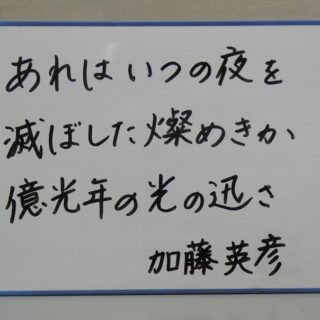 あれはいつの夜を
滅ぼした燦めきか
億光年の光の迅さ
加藤英彦